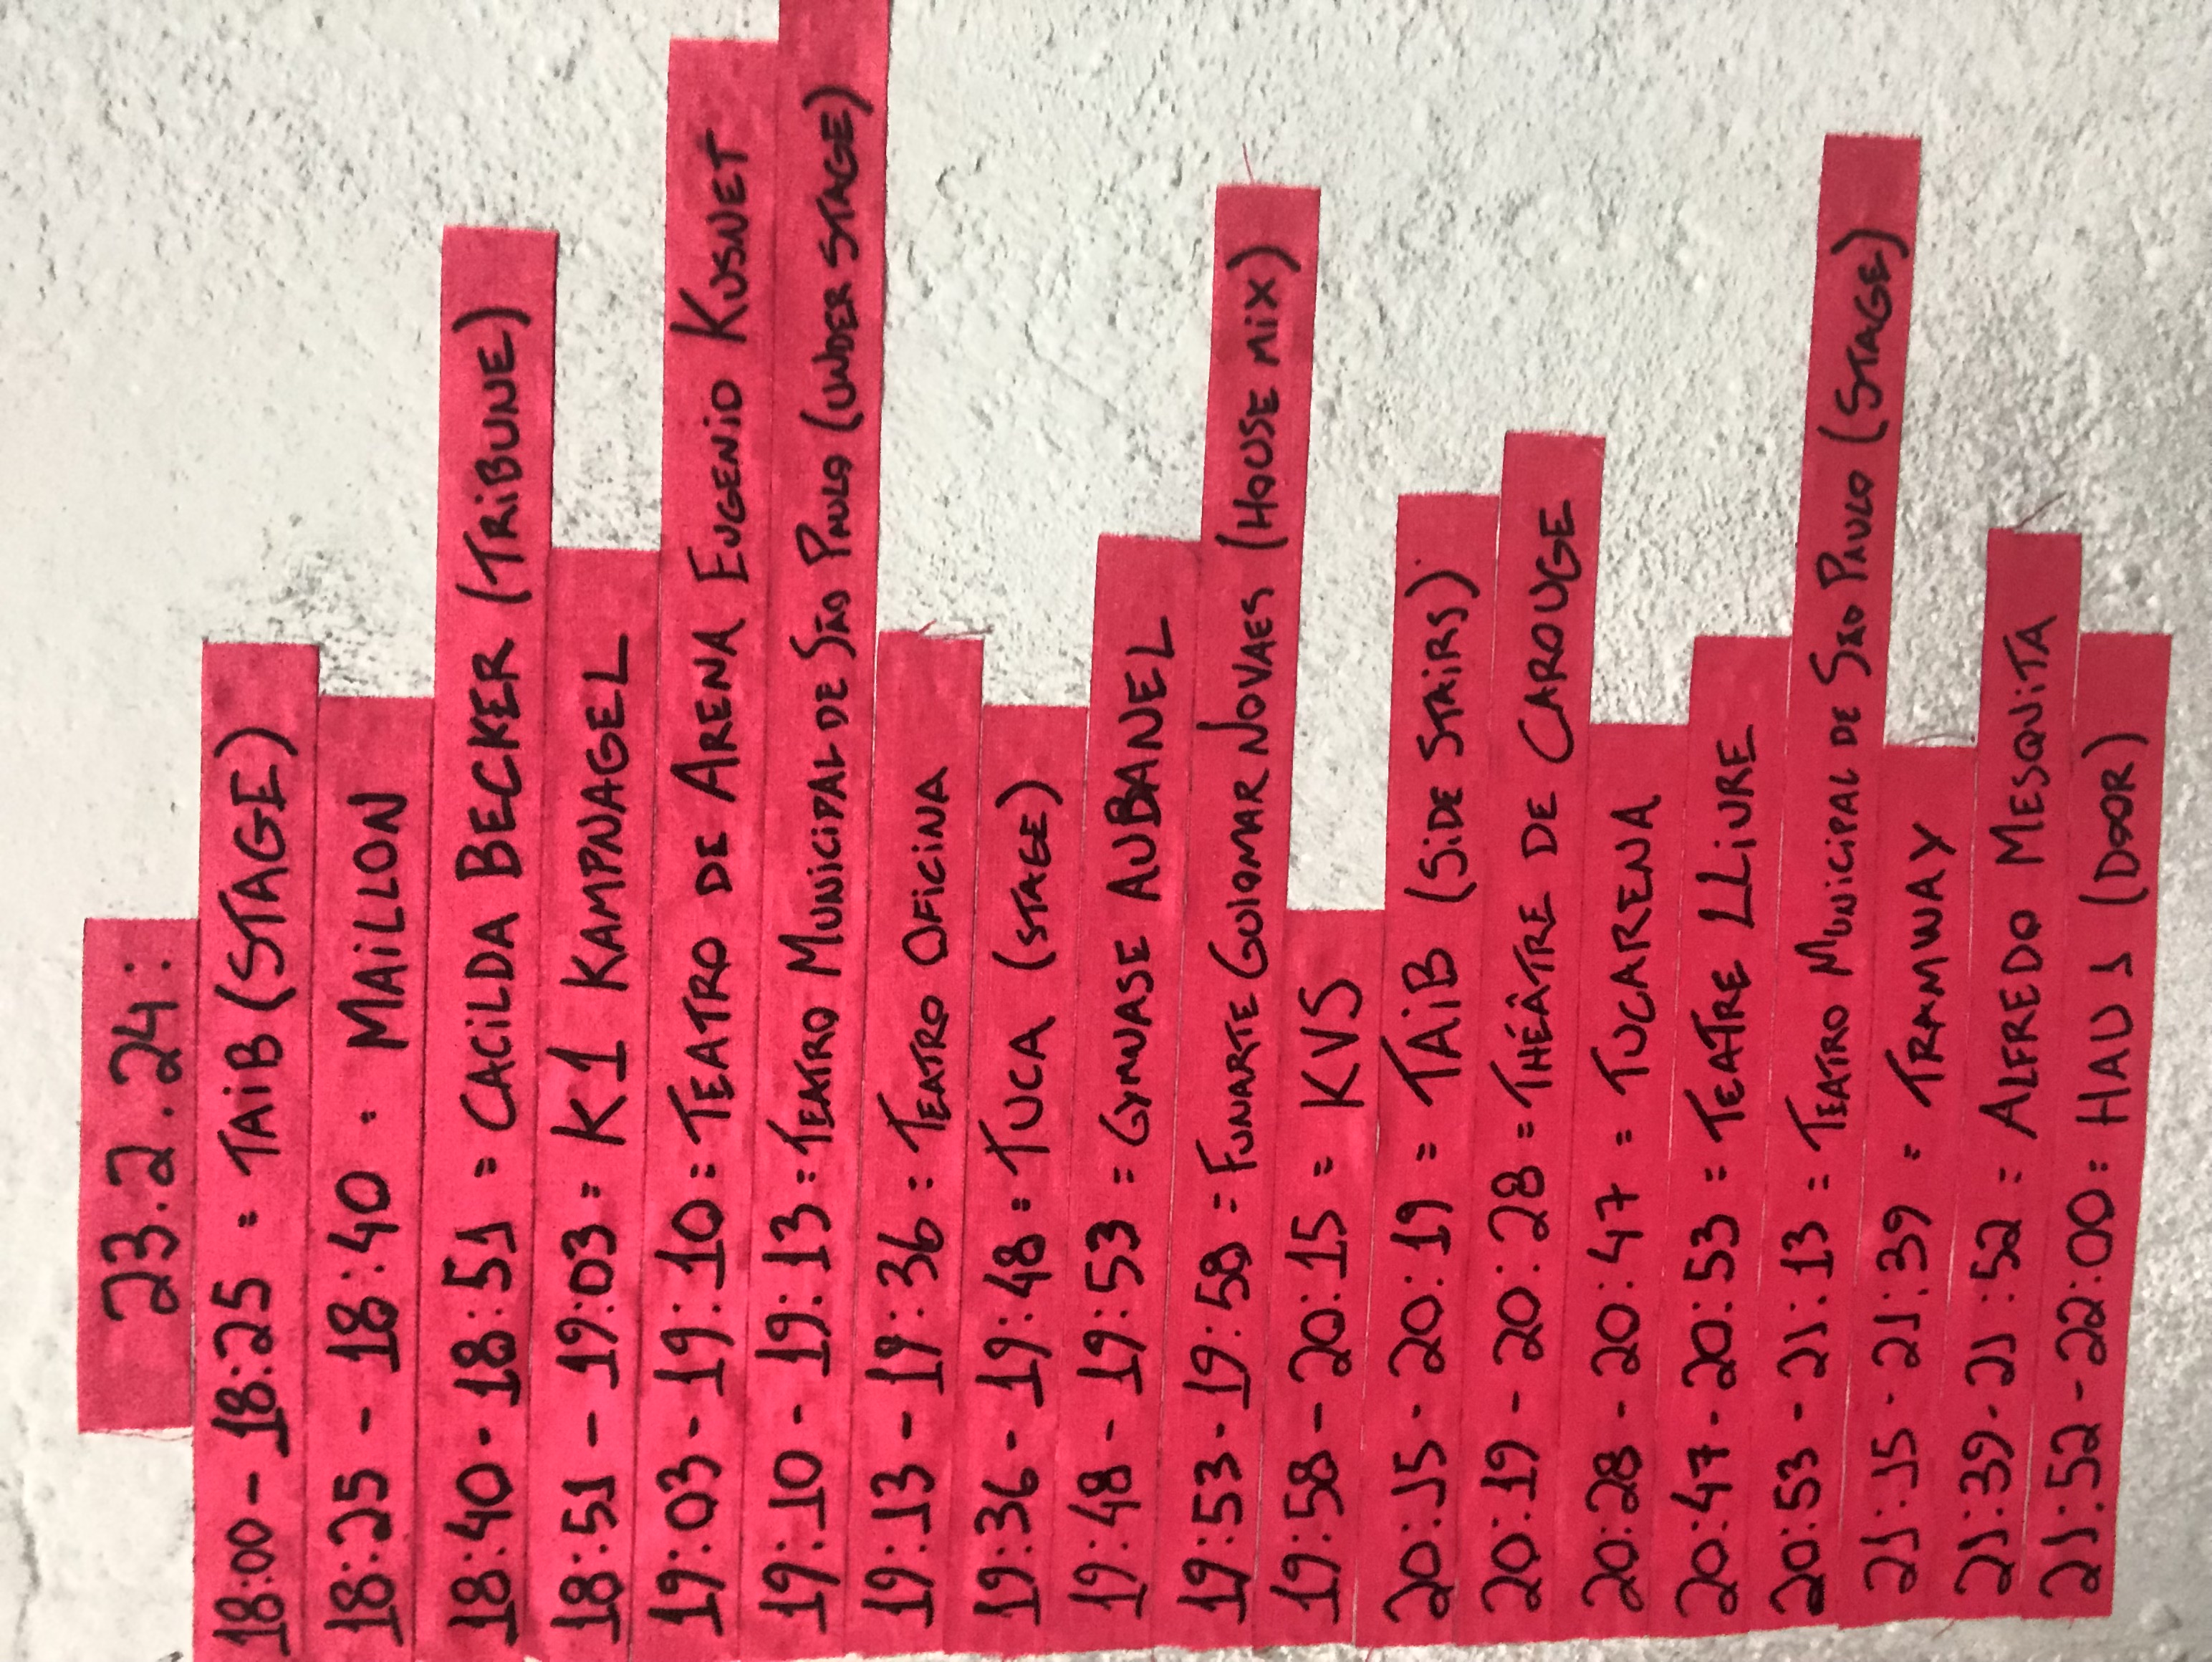 23.2.24:
18:00 - 18:25 = TAIB (STAGE)
18:25 - 18:40 = MAILLON
18:40 - 18:51 = CACILDA BECKER (TRIBUNE)
18:51 - 19:03 = K1 KAMPNAGEL
19:03 - 19:10 = TEATRO DE ARENA EUGENIO KUSNET
19:10 - 19:13 = TEATRO MUNICIPAL DE SÃO PAULO (UNDER STAGE)
19:13 - 19:36 = TEATRO OFICINA
19:36 - 19:48 = TUCA (STAGE)
19:48 - 19:53 = GYMNASE AUBANEL
19:53 - 19:58 = FUNARTE GUIOMAR NOVAES (HOUSE MIX)
19:58 - 20:15 = KVS
20:15 - 20:19 = TAIB (SIDE STAIRS)
20:19 - 20:28 = THÉÂTRE DE CAROUGE
20:28 - 20:47 = TUCARENA
20:47 - 20:53 = TEATRE LLIURE
20:53 - 21:13 = TEATRO MUNICIPAL DE SÃO PAULO (STAGE)
21:15 - 21:39 = TRAMWAY
21:39 - 21:52 = ALFREDO MESQUITA
21:52 - 22:00 = HAU 1 (DOOR)